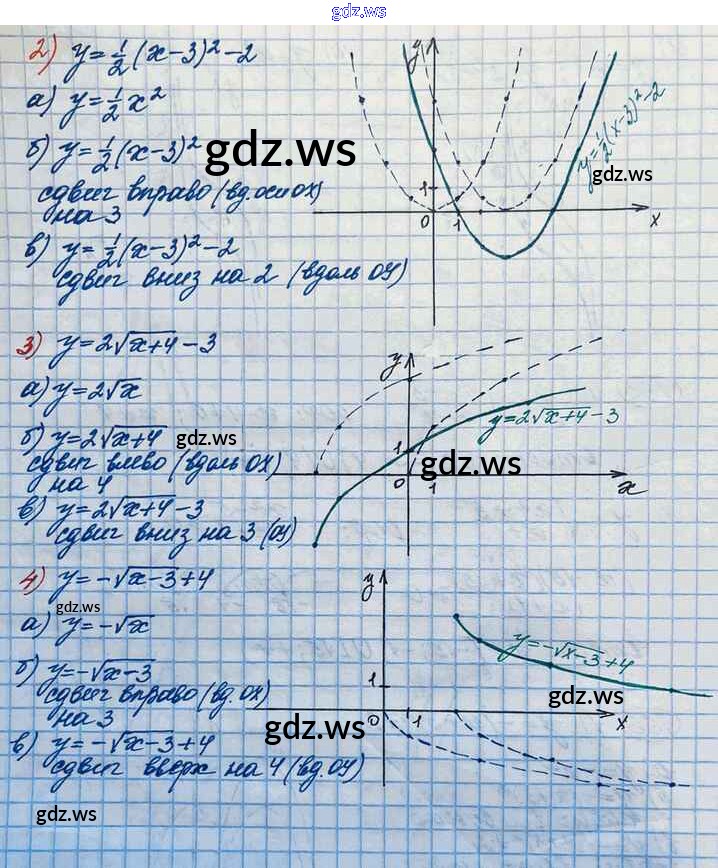 gdz.ws
2) y = 1/2 (x-3)² - 2
а) y = 1/2 x²
б) y = 1/2 (x-3)²
gdz.ws
сдвиг вправо (вд. оси OX)
на 3
в) y = 1/2 (x-3)² - 2
сдвиг вниз на 2 (вдоль OY)
y
1
0
1
x
y = 1/2 (x-3)² - 2
gdz.ws
3) y = 2√x+4 - 3
а) y = 2√x
б) y = 2√x+4
gdz.ws
сдвиг влево (вдоль OX)
на 4
в) y = 2√x+4 - 3
сдвиг вниз на 3 (OY)
y
1
0
1
x
y = 2√x+4 - 3
gdz.ws
4) y = -√x-3 + 4
gdz.ws
а) y = -√x
б) y = -√x-3
сдвиг вправо (вд. OX)
на 3
в) y = -√x-3 + 4
сдвиг вверх на 4 (вд. OY)
y
1
0
1
x
y = -√x-3 + 4
gdz.ws
gdz.ws
gdz.ws